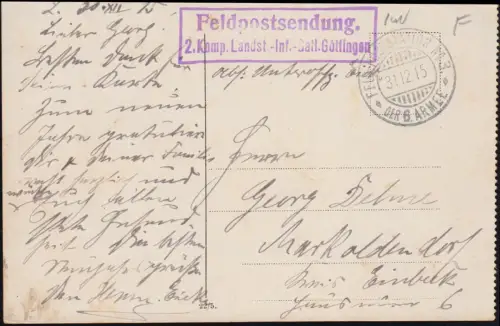 L. 30. XII. 15
Lieber Georg.
Besten Dank
Karte.
Zum neuen
Jahre gratuliere
Dir & deiner Familie
recht herzlich und
wünsche Euch allen
Gesund-
heit. Die besten
Neujahrsgrüße
Feldpostsendung.
2. Komp. Landst.-Inf.-Batl. Göttingen
31.12.15
DER 6. ARMEE
F
Herrn
Georg Dehne
Markoldendorf
Kreis Einbeck
Hausnummer 6